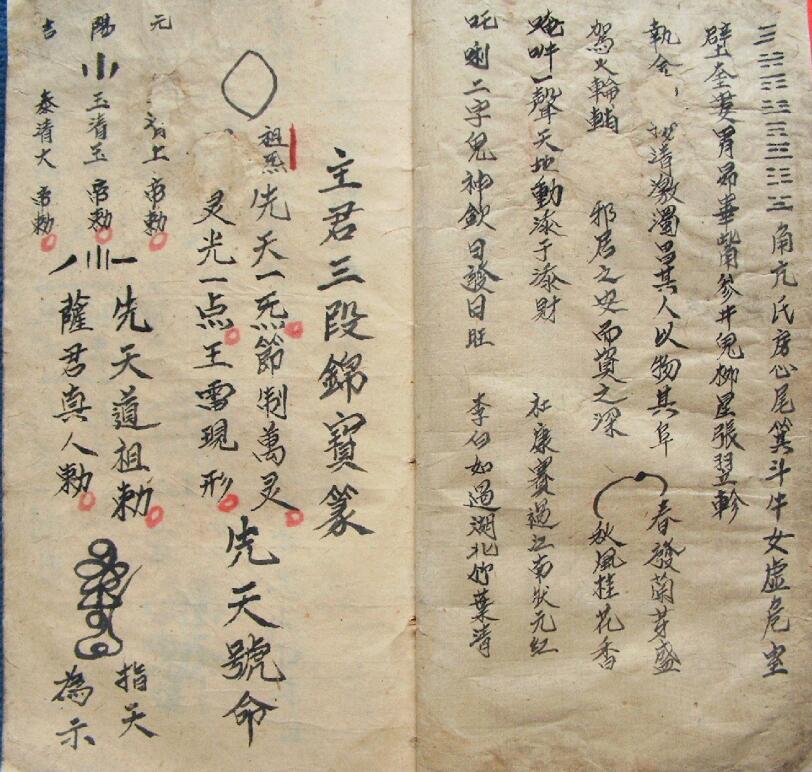 角亢氐房心尾箕斗牛女虛危室
壁奎婁胃昴畢觜參井鬼柳星張翌軫
執金 清激濁昌其人以物其阜
春發蘭芽盛
駕火輪輔 邪居之安而資之深
秋風桂花香
唵吽一聲天地動添子添財
杜康賽過江南狀元紅
吒唎二字鬼神欽日發日旺
李白如遇湖北竹葉清
主君三段錦寶篆
祖炁
先天一炁節制萬灵
灵光一点王霊現形
先天號命
元 上帝勅
陽 玉清玉帝勅
吉 泰清大帝勅
先天道祖勅
薩君真人勅
指天
為示